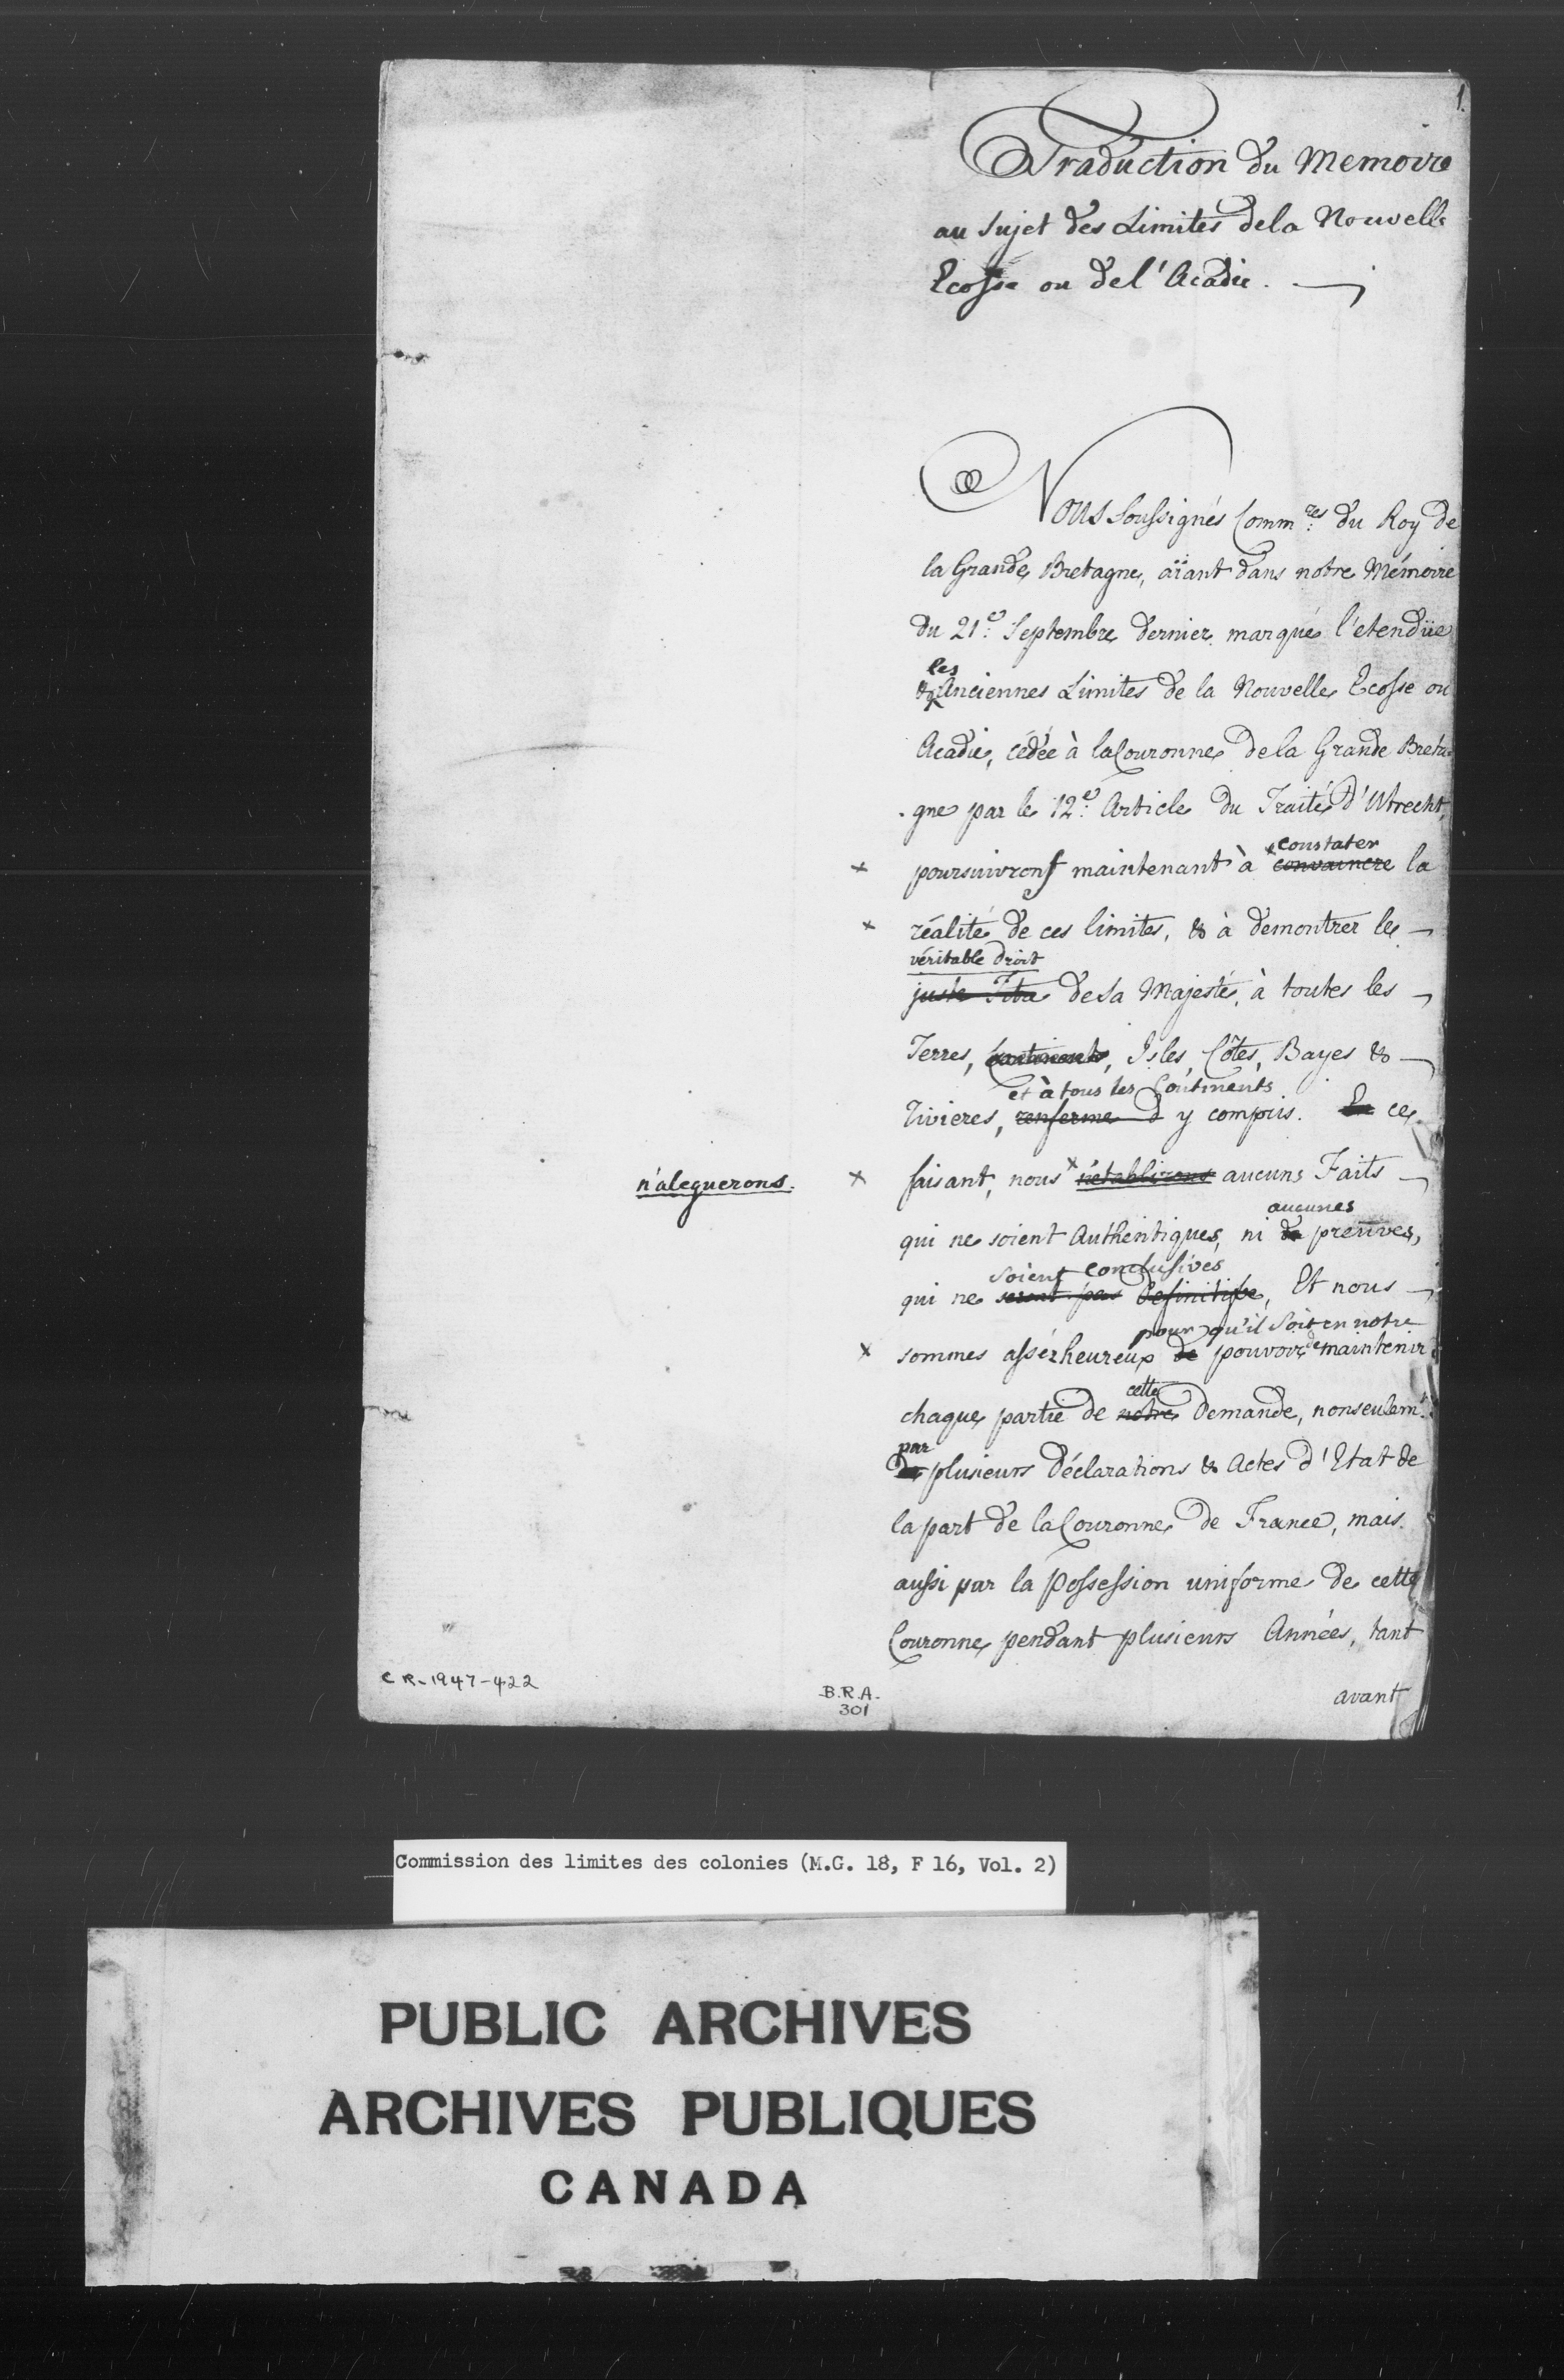 1.
Traduction du Memoire
au sujet des Limites dela Nouvelle
Ecosse ou del'Acadie.
Nous Soussignés Comm.res du Roy de
la Grande Bretagne, aïant dans notre Mémoire
du 21e. Septembre dernier marqué l'etendüe
les
& Anciennes Limites de la Nouvelle Ecosse ou
Acadie, cédée à la Couronne de la Grande Breta-
-gne par le 12e. Article du Traité d'Utrecht,
constater
x poursuivrons maintenant à x convaincre la
x réalité de ces limites, & à demontrer le
véritable droit
juste Titre de Sa Majesté, à toutes les
Terres, Continents, Isles, Côtes, Bayes &
et à tous les Continents
Rivieres, renfermed y compris. En ce
n'aleguerons. x faisant, nous x n'établirons aucuns Faits
aucunes
qui ne soient Authentiques, ni de preuves,
soient conclusives
qui ne seront pas Definitive, Et nous
pour qu'il soit en notre
x sommes assez heureux de pouvoir de maintenir
cette
chaque partie de notre Demande, nonseulemt.
par
de plusieurs Déclarations & Actes d'Etat de
la part de la Couronne de France, mais
aussi par la Possession uniforme de cette
Couronne pendant plusieurs Années, tant
avant
CR-1947-422
B.R.A.
301
Commission des limites des colonies (M.G. 18, F 16, Vol. 2)
PUBLIC ARCHIVES
ARCHIVES PUBLIQUES
CANADA